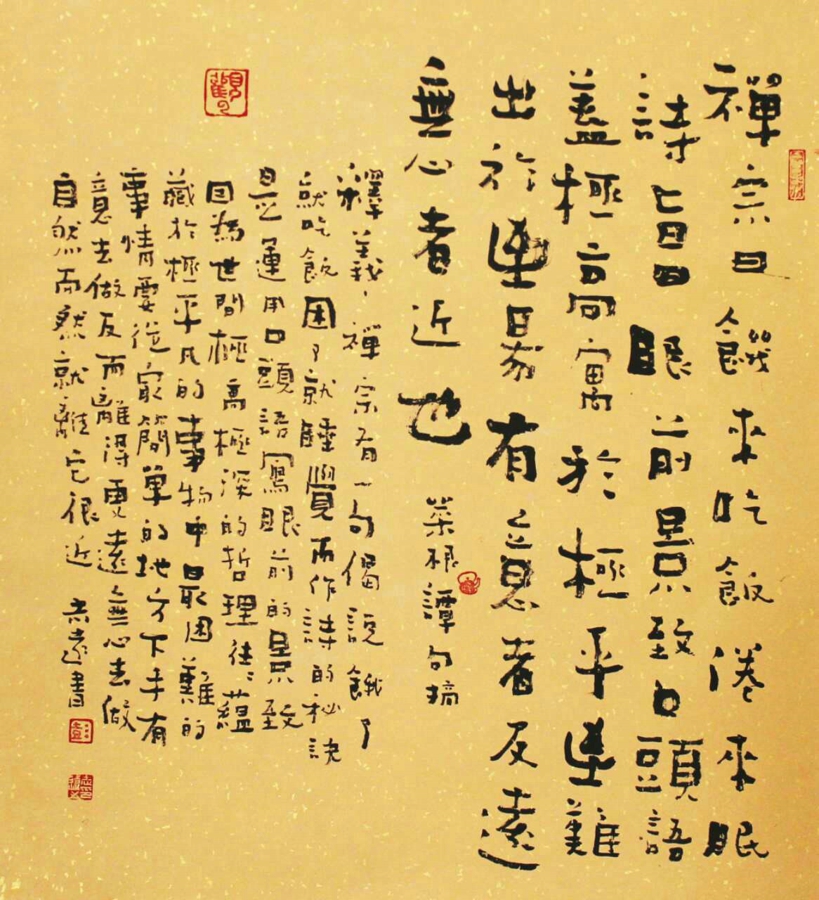 禪宗曰饑來吃飯倦來眠
詩旨曰眼前景致口頭語
蓋極高寓於極平至難
出於至易有意者反遠
無心者近也
菜根譚句摘
釋義，禪宗有一句偈說餓了
就吃飯困了就睡覺而作詩的秘訣
是運用口頭語寫眼前的景致
因為世間極高極深的哲理往往蘊
藏於極平凡的事物中最困難的
事情要從最簡單的地方下手有
意去做反而離得更遠無心去做
自然而然就離它很近 志遠書
觀